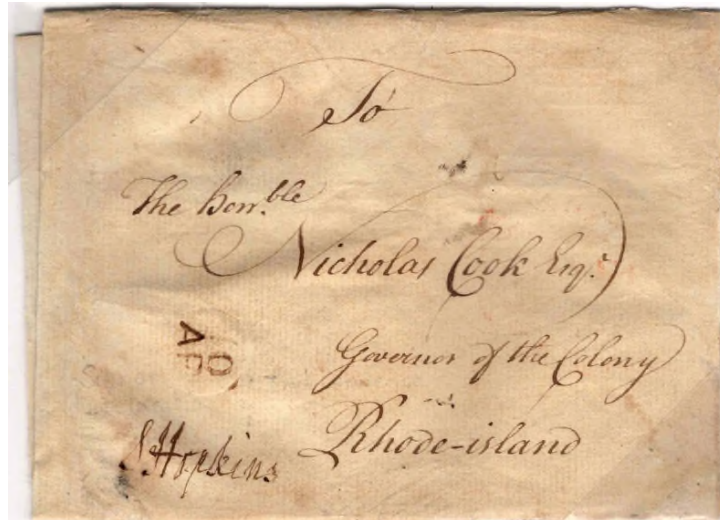 To
The Honr.ble
Nicholas Cook Esq.r
Governor of the Colony
Rhode-island
S Hopkins